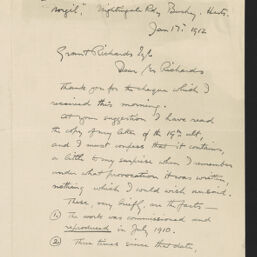 "Nightingale Rdg Bushey. Herts.
Jan 17th 1912
Grant Richards Esq
Dear Mr Richards
Thank you for the cheque which I
received this morning.
At your suggestion I have read
the copy of my letter of the 19th ult,
and I must confess that it contains,
a little to my surprise when I remember
under what provocation it was written,
nothing which I would wish unsaid.
These, very briefly, are the facts—
(1) The work was commissioned and
reproduced in July 1910.
(2) Three times since that date,